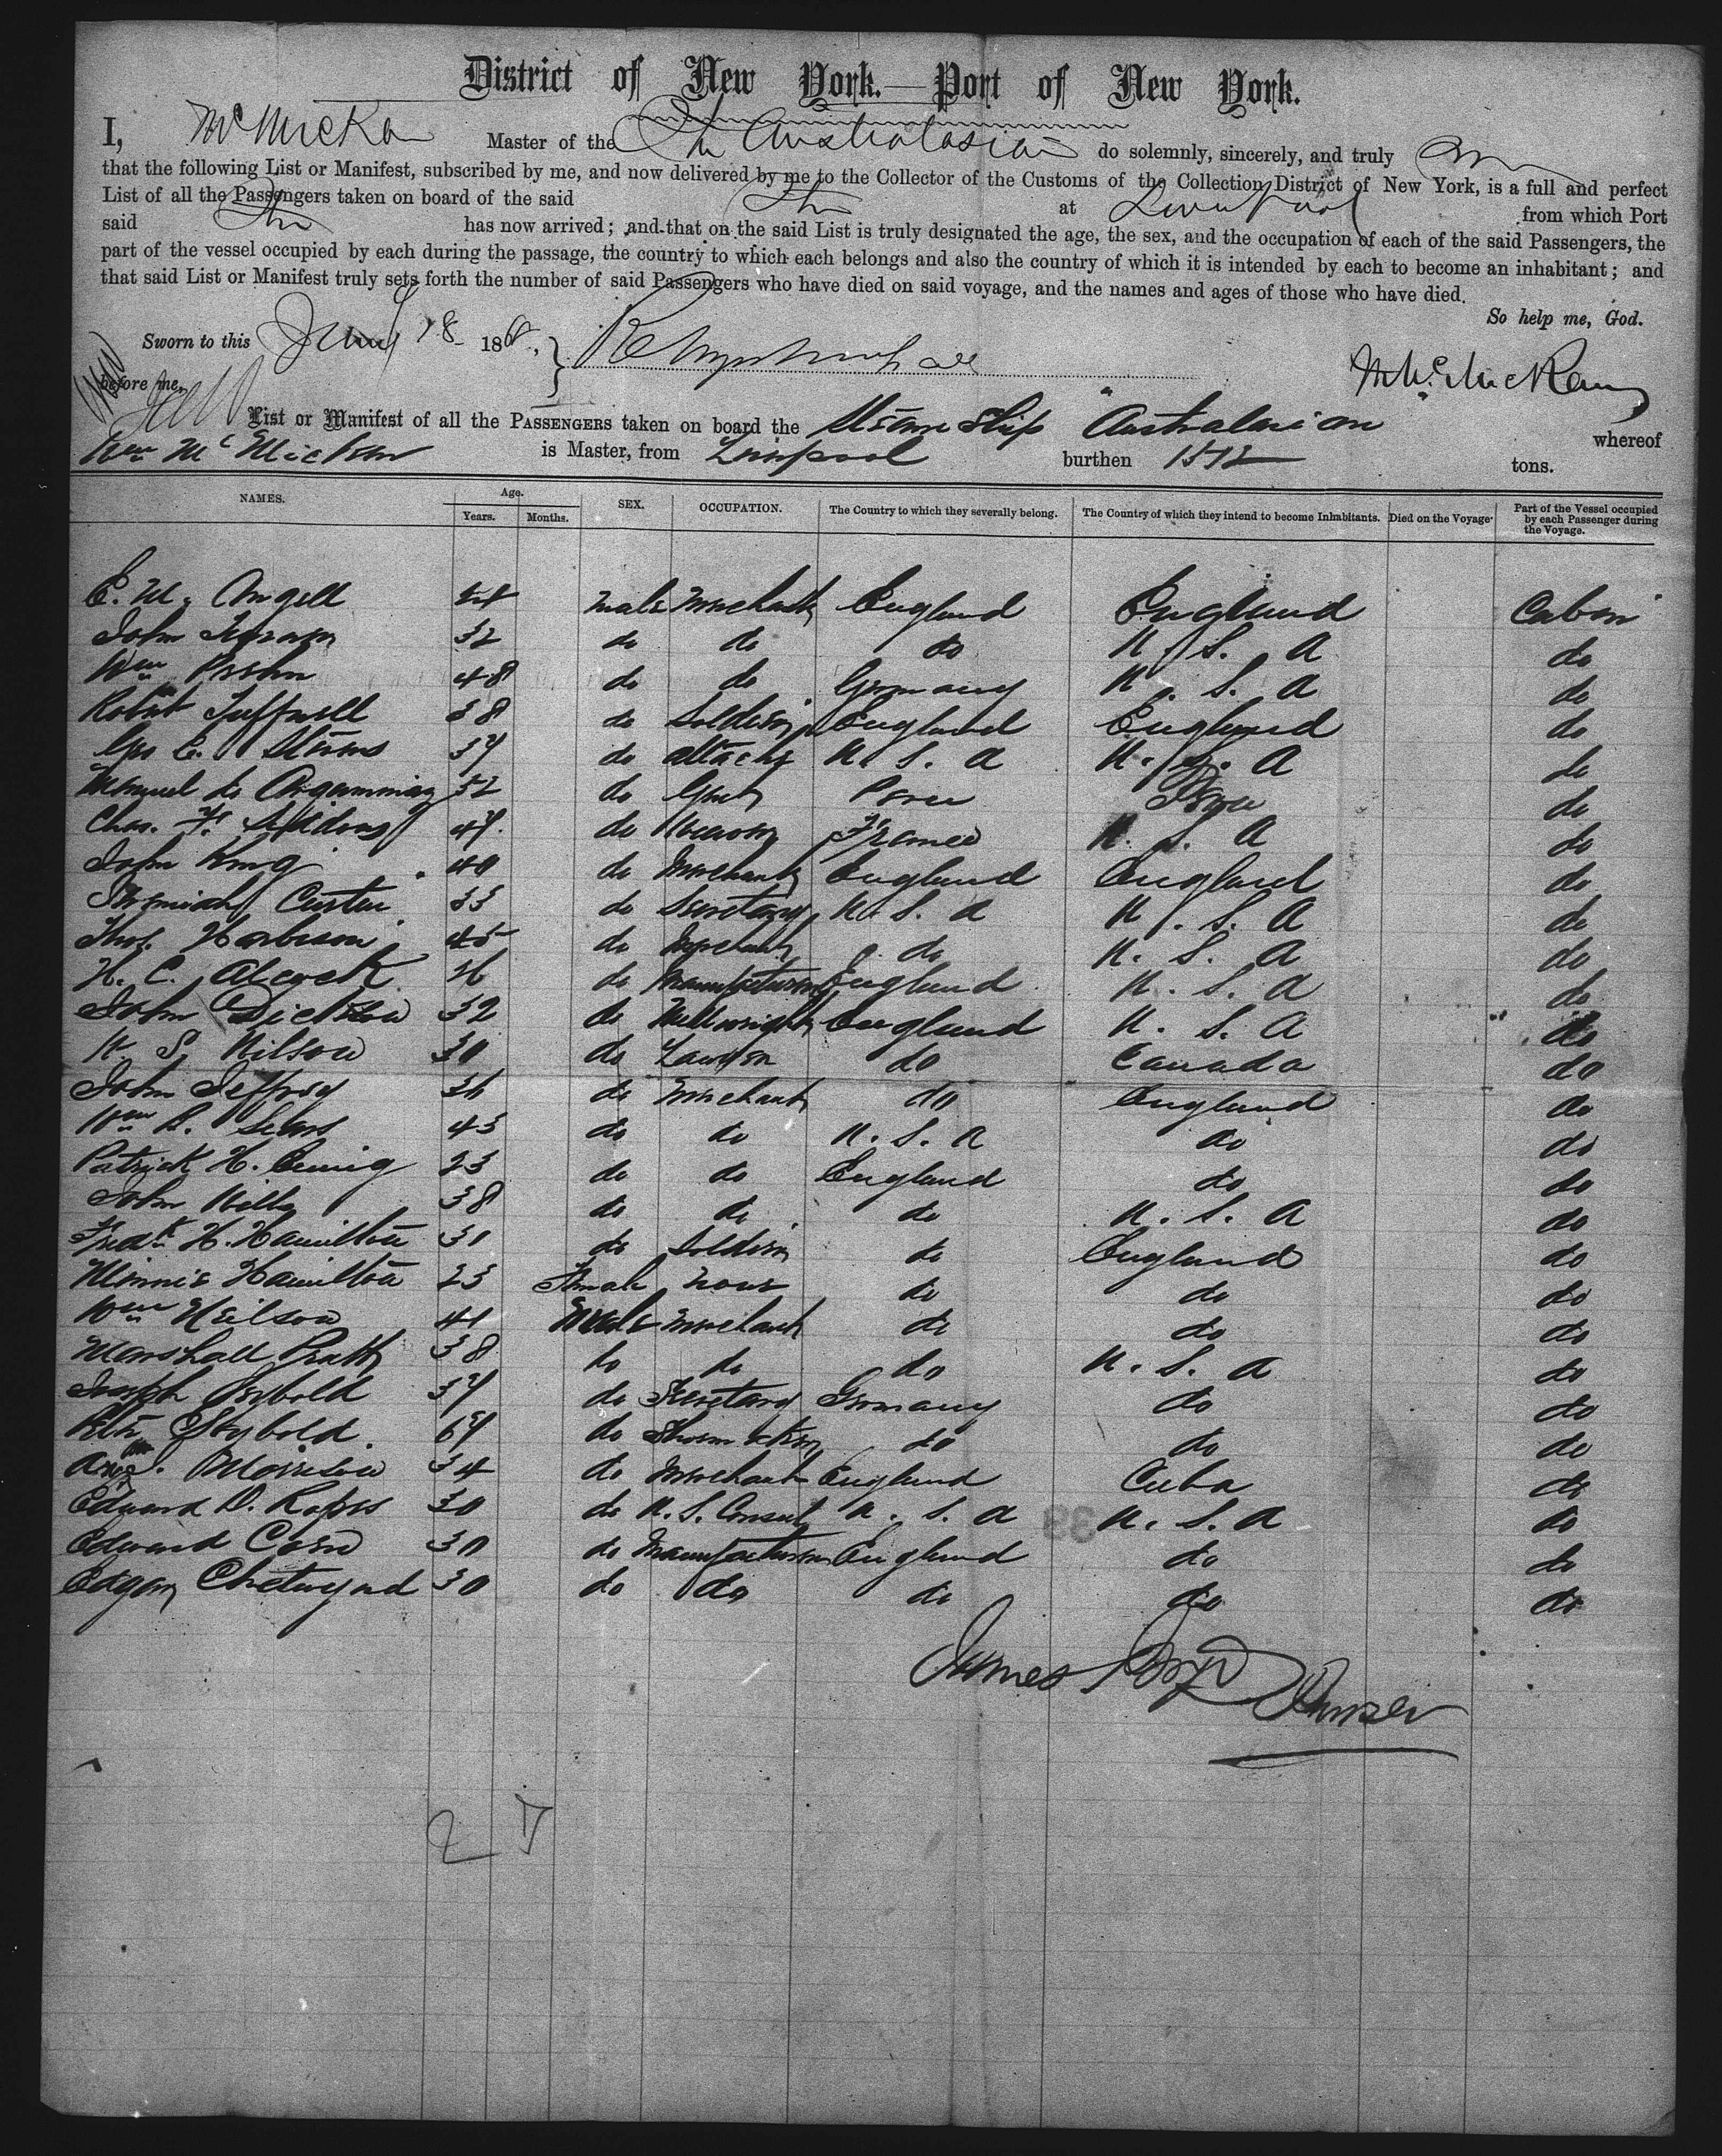 District of New York.—Port of New York.
I, McMicka Master of the Str Australasian do solemnly, sincerely, and truly
that the following List or Manifest, subscribed by me, and now delivered by me to the Collector of the Customs of the Collection District of New York, is a full and perfect
List of all the Passengers taken on board of the said Str at Liverpool from which Port
said Str has now arrived; and that on the said List is truly designated the age, the sex, and the occupation of each of the said Passengers, the
part of the vessel occupied by each during the passage, the country to which each belongs and also the country of which it is intended by each to become an inhabitant; and
that said List or Manifest truly sets forth the number of said Passengers who have died on said voyage, and the names and ages of those who have died.
So help me, God.
Sworn to this 18 186
before me, McMickan
List or Manifest of all the PASSENGERS taken on board the Steam Ship "Australasian" whereof
Wm McMickan is Master, from Liverpool burthen tons.
NAMES. Age. Years. Months. SEX. OCCUPATION. The Country to which they severally belong. The Country of which they intend to become Inhabitants. Died on the Voyage. Part of the Vessel occupied by each Passenger during the Voyage.
E. W. Angell male Merchant England England Cabin
John 32 do do do U. S. A do
Wm 48 do do Germany U. S. A do
Robert Tuffnell 38 do Soldier England England do
Geo E. 37 do attache U. S. A U. S. A do
Manuel de 32 do Gent Peru Peru do
Chas. F. 47 do France U. S. A do
John King 40 do Merchant England England do
Jeremiah Custer 33 do Secretary U. S. A U. S. A do
Thos. Harbison 45 do Merchant do U. S. A do
H. C. Alcock 26 do Manufacturer England U. S. A do
John Dickson 32 do Millwright England U. S. A do
W. S. Wilson 30 do Lawyer do Canada do
John Jeffrey 36 do Merchant do England do
Wm B. Sears 43 do do U. S. A do do
Patrick H. 23 do do England do do
John 38 do do do U. S. A do
Fredk H. Hamilton 31 do Soldier do England do
Minnie Hamilton 23 Female none do do do
Wm Neilson 41 Male Merchant do do do
Marshall Pratt 38 do do do U. S. A do
Joseph Seybold 37 do Secretary Germany do do
Seybold. 67 do do do do
Morrison 34 do Merchant England Cuba do
Edward D. Ropes 30 do U. S. Consul U. S. A U. S. A do
Edward 30 do Manufacturer England do do
Edgar Chetwynd 30 do do do do do
James
27